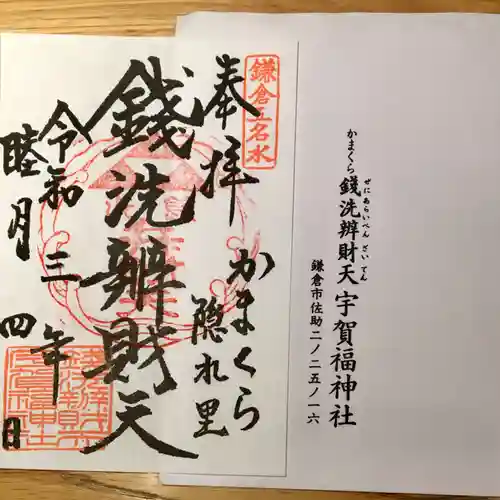 鎌倉五名水
奉拝
かまくら
隠れ里
錢洗辨財天
令和三年
睦月四日
かまくら
ぜにあらいべんざいてん
錢洗辨財天宇賀福神社
鎌倉市佐助二ノ二五ノ一六